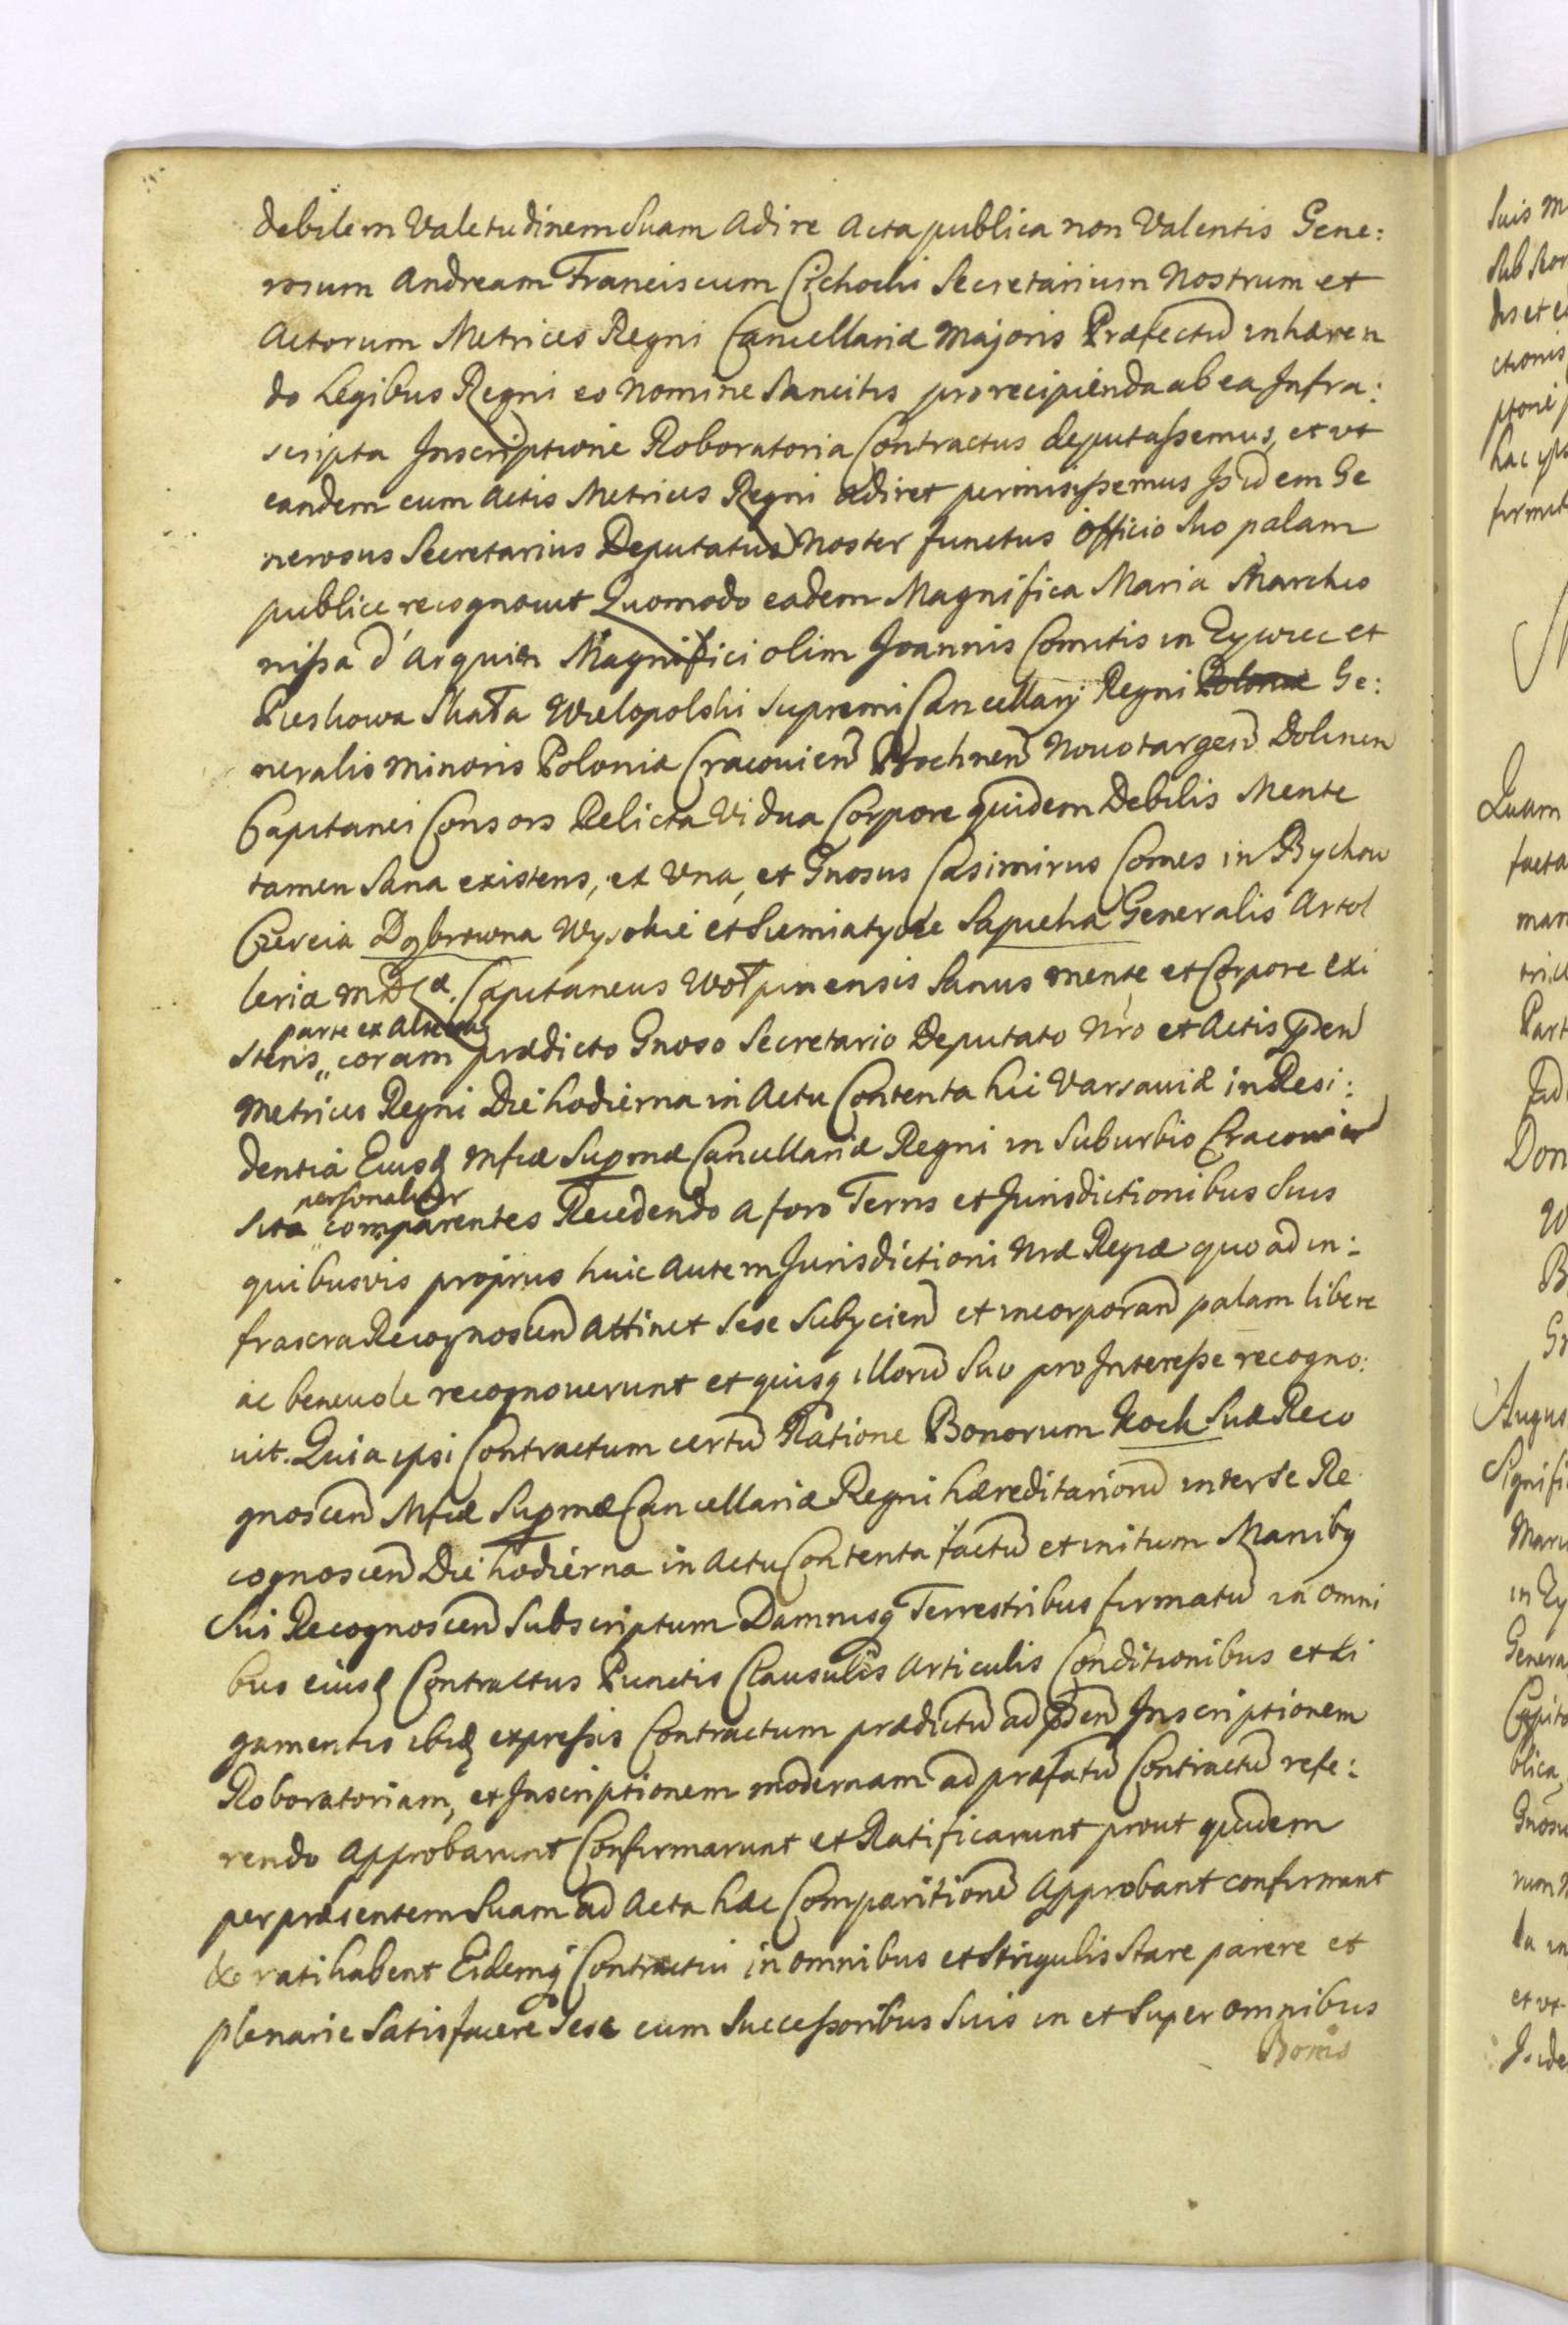 debilem Valetudinem Suam adire acta publica non Valentis Gene:
rosum Andream Franciscum Cichocki Secretarium Nostrum et
actorum Metrices Regni Cancellariæ Majoris Præfectũ inhæren
do Legibus Regni eo Nomine Sancitis pro recipienda ab ea Infra:
scripta Inscriptione Roboratoria Contractus deputassemus, et vt
eandem cum actis Metrices Regni adiret permisissemus Isidem Ge
nerosus Secretarius Deputatus Noster functus officio Suo palam
publice recognouit Quomodo eadem Magnifica Maria Marchio
nissa d'Arquien Magnifici olim Joannis Comitis in Zywiec et
Pieskowa Skała Wielopolski Supremi Cancellarij Regni Poloniæ Ge:
neralis minoris Poloniæ Cracouien̄ Bochnen̄ Nouotargen̄ Dolinen
Capitanei Consors Relicta Vidua Corpore quidem Debilis Mente
tamen Sana existens, et Vna, et Gnosus Casimirus Comes in Bychow
Czereia Dąbrowna Wysokie et Siemiatycze Sapieha Generalis Artol
leriæ M.D.L.æ. Capitaneus Wołpinensis Sanus mente et Corpore exi
parte ex altera
stens,, coram prædicto Gnoso Secretario Deputato Nro et Actis pden̄
Metrices Regni Die hodierna in Actu Contenta hic Varsauiæ in Resi:
dentia Eiusđ Mfcæ Supmæ Cancellariæ Regni in Suburbio Cracouien̄
personaliter
Sita,, comparentes Recedendo a foro Terris et Jurisdictionibus Suis
quibusvis proprius huic autem Jurisdictioni Nræ Regiæ quo ad in:
frascra Recognoscen̄ attinet Sese Subycien̄ et incorporan̄ palam libere
ac beneuole recognouerunt et quisq illorũ Suo pro Interesse recogno:
uit. Quia ipsi Contractum certũ Ratione Bonorum Kock Suæ Reco
gnoscen̄ Mfcæ Supmæ Cancellariæ Regni hæreditariorũ inter Se Re
cognoscen̄ Die hodierna in Actu Contenta factũ et initum Manibq
Sui Recognoscen̄ Subscriptum Damnisq Terrestribus firmatũ in omni
bus eiusđ Contractus Punctis Clausulis Articulis Conditionibus et Li
gamentis ibiđ expressis Contractum prædictũ ad pden̄ Inscriptionem
Roboratoriam, et Inscriptionem modernam ad præfatũ Contractũ refe:
rendo Approbarunt Confirmarunt et Ratificarunt prout quidem
per præsentem Suam ad Acta hæc Comparitionẽ Approbant confirmant
& ratihabent Eidemq Contractui in omnibus et Singulis Stare parere et
plenarie Satisfacere Sese cum Successoribus Suis in et Super omnibus
Bonis